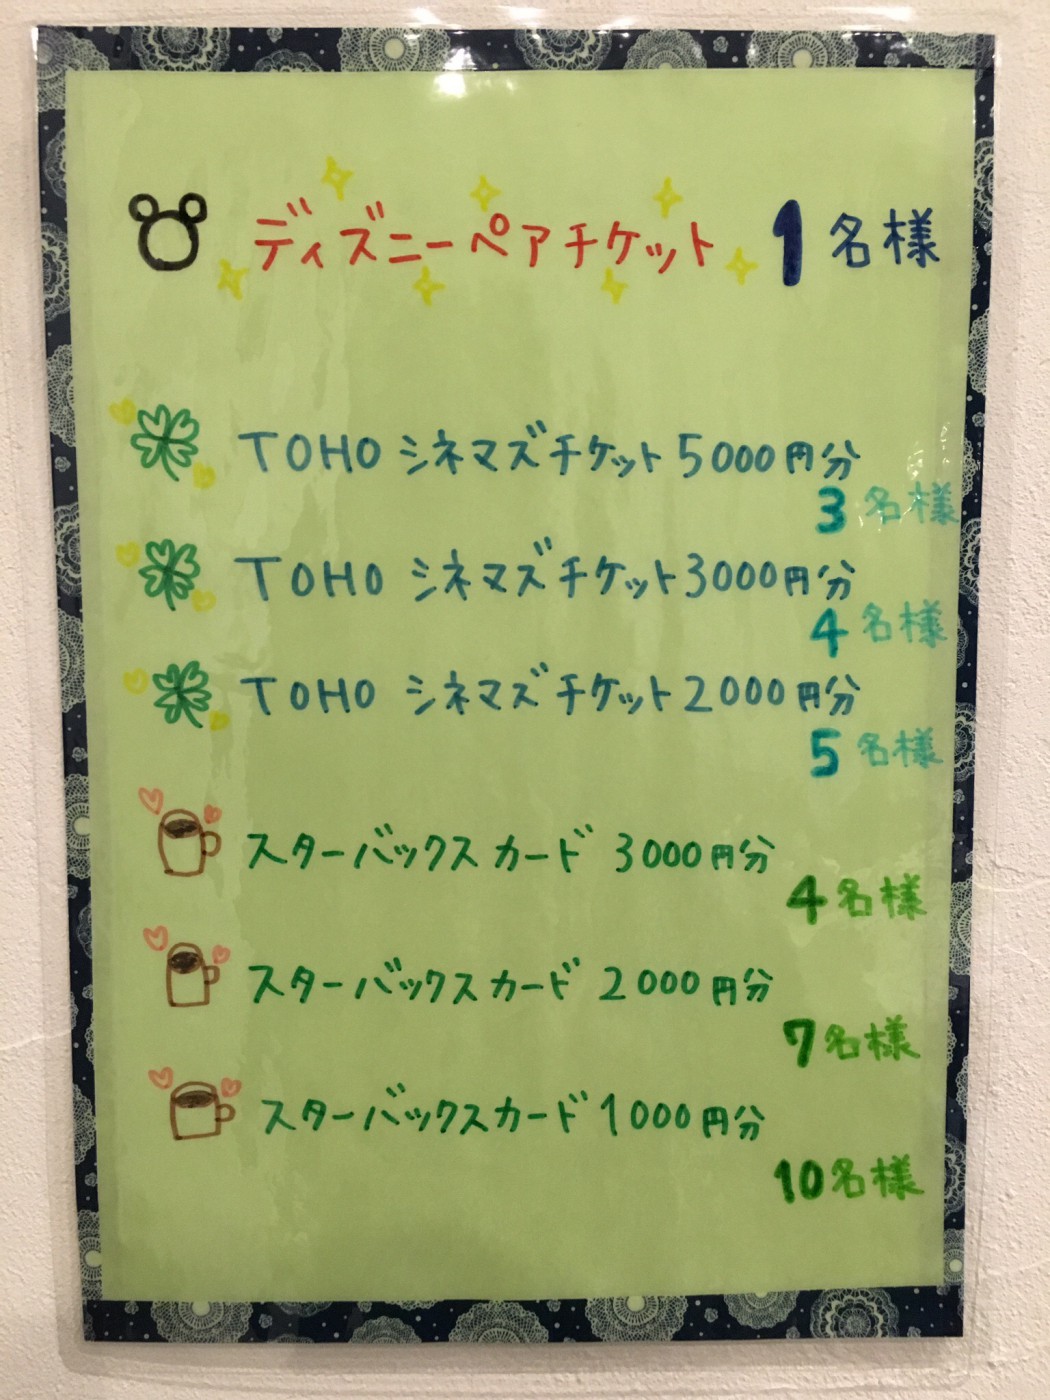 ディズニーペアチケット 1名様
TOHO シネマズチケット 5000円分
3名様
TOHO シネマズチケット 3000円分
4名様
TOHO シネマズチケット 2000円分
5名様
スターバックスカード 3000円分
4名様
スターバックスカード 2000円分
7名様
スターバックスカード 1000円分
10名様